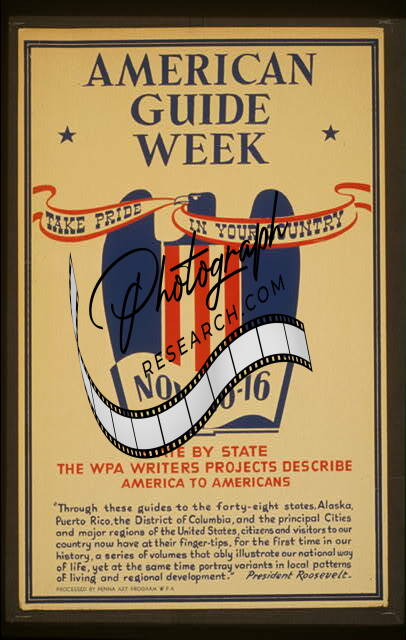 AMERICAN
GUIDE
WEEK
TAKE PRIDE IN YOUR COUNTRY
Photograph
RESEARCH.COM
NO 0-16
TE BY STATE
THE WPA WRITERS PROJECTS DESCRIBE
AMERICA TO AMERICANS
"Through these guides to the forty-eight states, Alaska,
Puerto Rico, the District of Columbia, and the principal Cities
and major regions of the United States, citizens and visitors to our
country now have at their finger-tips, for the first time in our
history, a series of volumes that ably illustrate our national way
of life, yet at the same time portray variants in local patterns
of living and regional development." President Roosevelt.
PROCESSED BY PENNA ART PROGRAM W P A